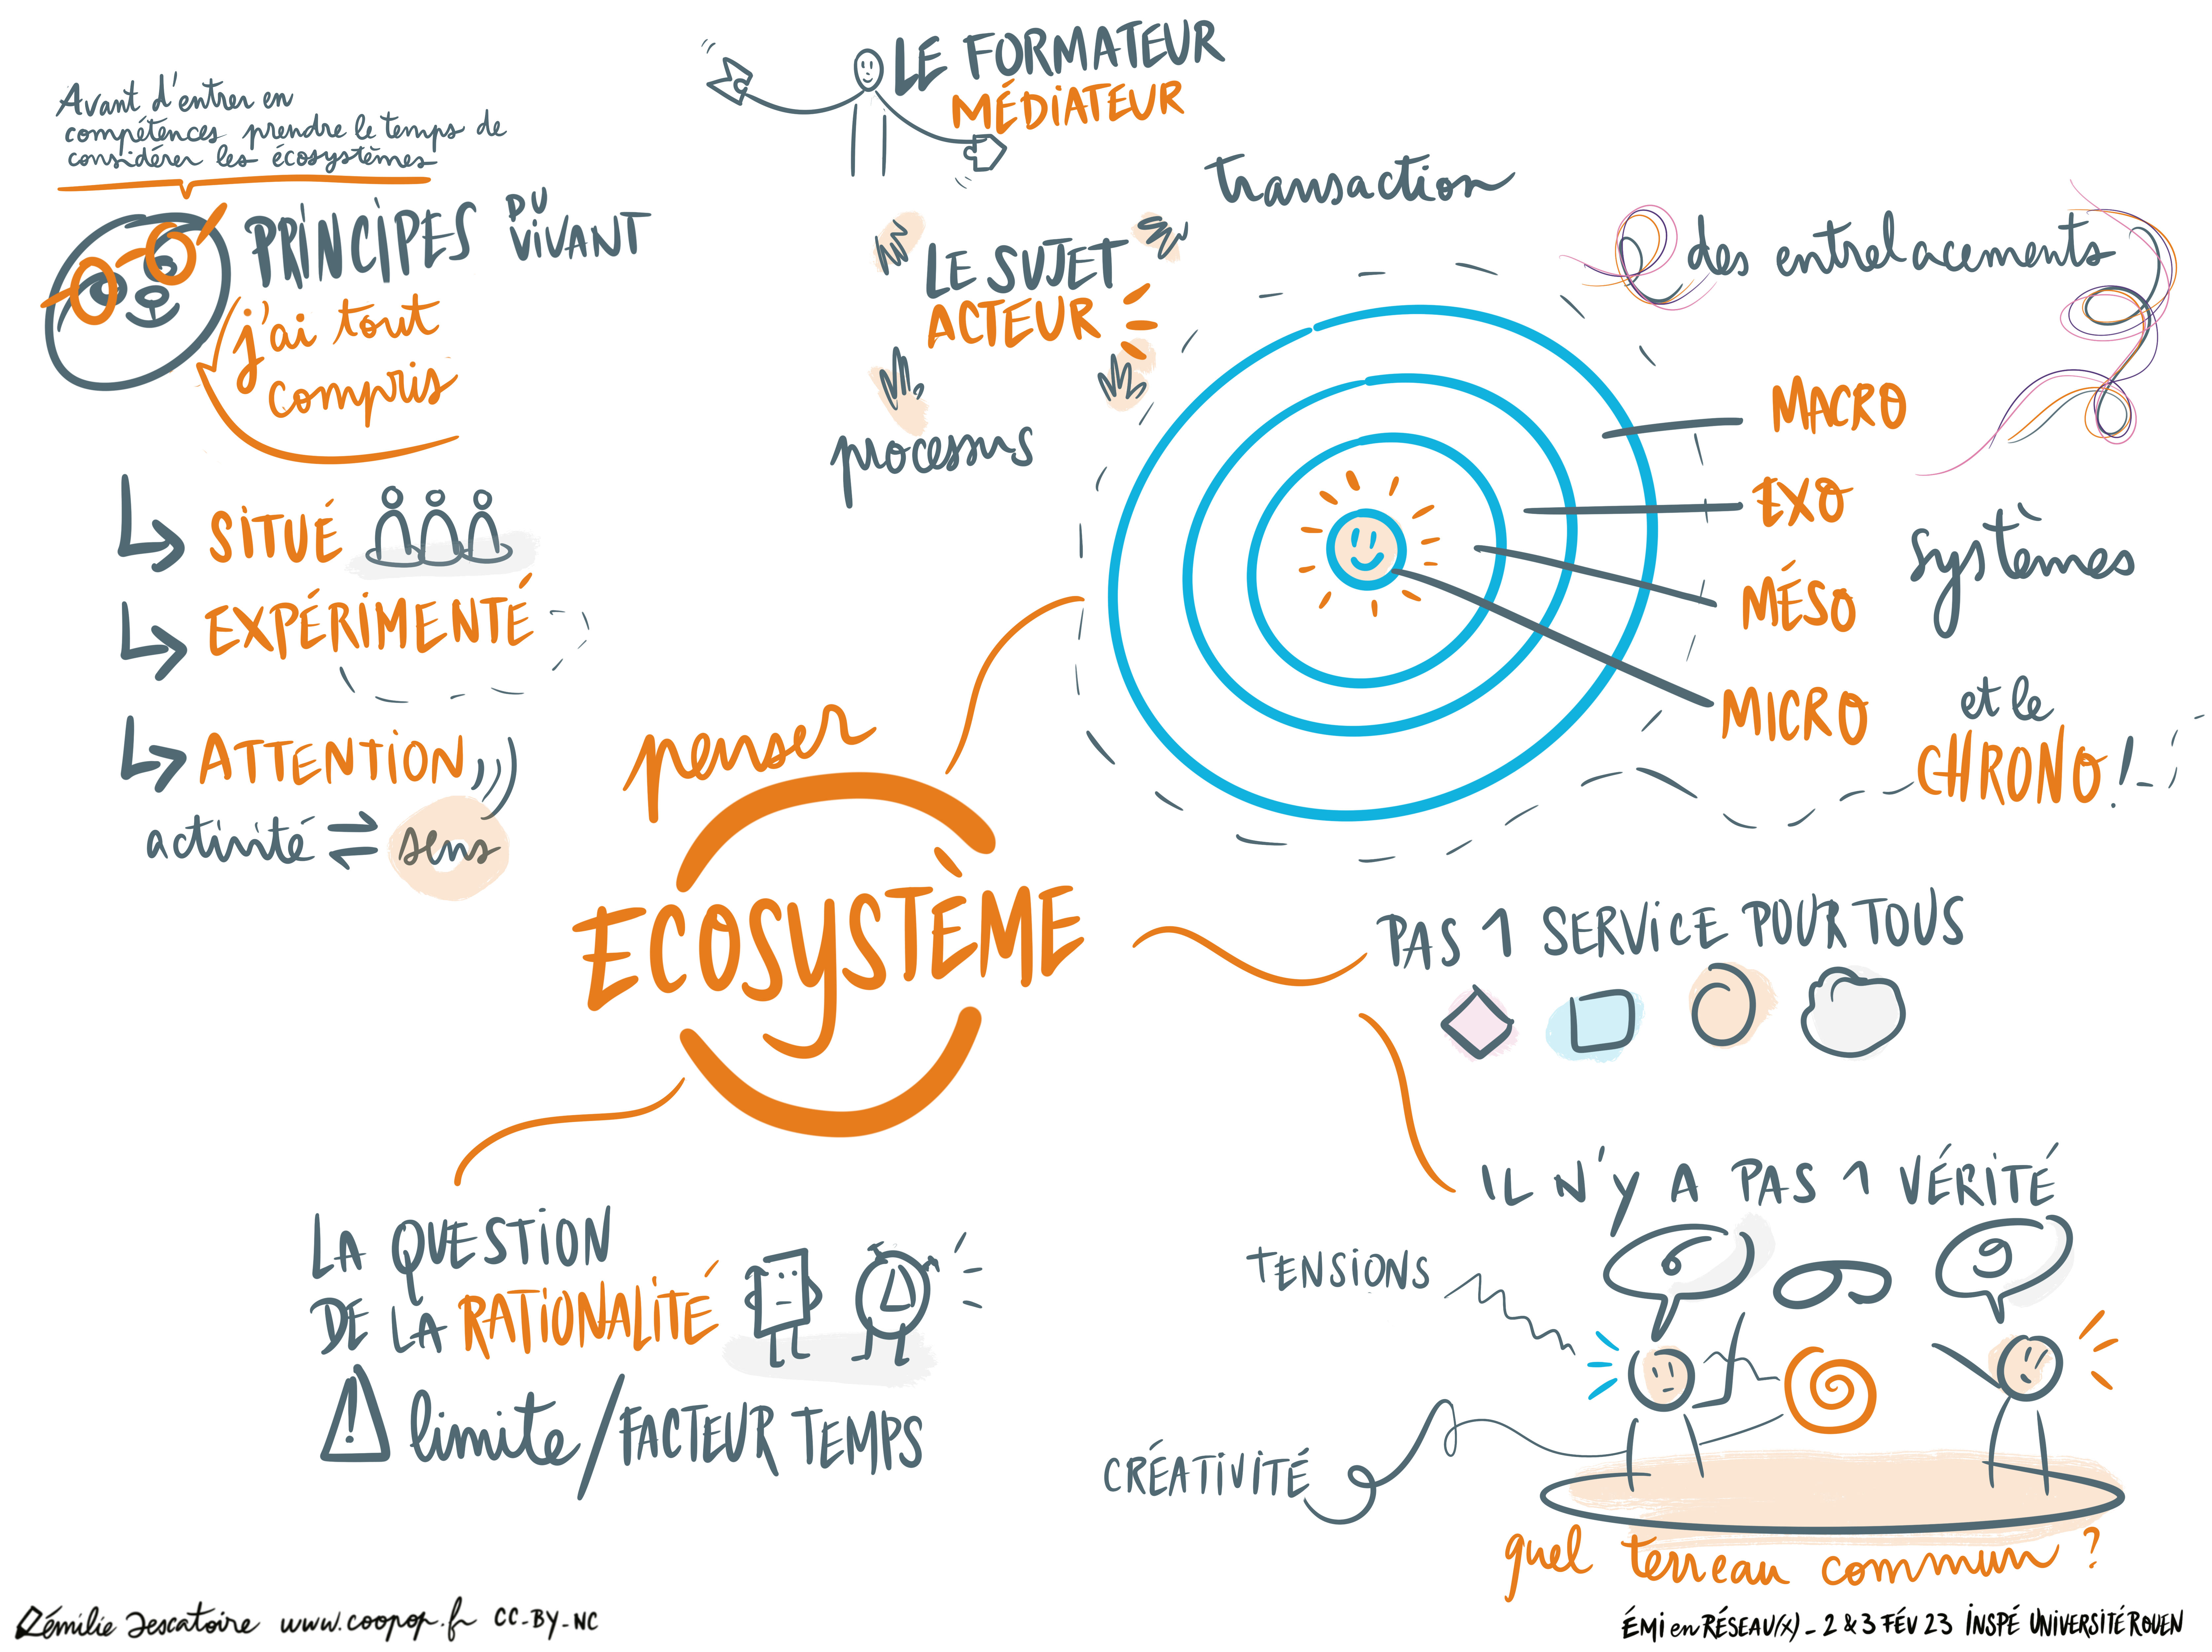 Avant d'entrer en
compétences prendre le temps de
considérer les écosystèmes
PRINCIPES DU VIVANT
j'ai tout
compris
SITUÉ
EXPÉRIMENTÉ
ATTENTION
activité ⇌ sens
LE FORMATEUR
MÉDIATEUR
LE SUJET
ACTEUR
processus
transaction
des entrelacements
MACRO
EXO
MÉSO
MICRO
systèmes
et le
CHRONO !
penser
ECOSYSTÈME
PAS 1 SERVICE POUR TOUS
IL N'Y A PAS 1 VÉRITÉ
6
9
TENSIONS
CRÉATIVITÉ
quel terreau commun ?
LA QUESTION
DE LA RATIONALITÉ
! limite / FACTEUR TEMPS
www.coopop.fr CC-BY-NC
ÉMI en RÉSEAU(X) - 2 & 3 FÉV 23 INSPÉ UNIVERSITÉ ROUEN